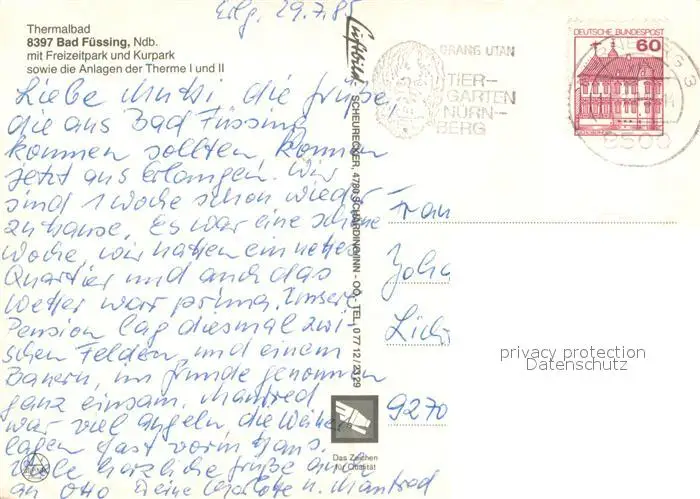 Erlg. 29.7.85
Thermalbad
8397 Bad Füssing, Ndb.
mit Freizeitpark und Kurpark
sowie die Anlagen der Therme I und II
Liebe Mutti die Grüße,
die aus Bad Füssing
kommen sollten, kommen
jetzt aus Erlangen. Wir
sind 1 Woche schon wieder
zuhause. Es war eine schöne
Woche, wir hatten ein nettes
Quartier und auch das
Wetter war prima. Unsere
Pension lag diesmal zwi-
schen Feldern, und einem
Bauern, im Grunde genommen
ganz einsam. Manfred
war viel angeln, die Weiher
lagen fast vorm Haus.
Viele herzliche Grüße auch
an Otto Deine Charlotte u. Manfred
Luftbild
SCHEURECKER, 4780 SCHÄRDING/INN - OÖ., TEL. 0 77 12 / 23 29
Das Zeichen
für Qualität
ORANG UTAN
TIER-
GARTEN
NÜRN-
BERG
DEUTSCHE BUNDESPOST
60
8500
Frau
Joha
Lich
9270
privacy protection
Datenschutz